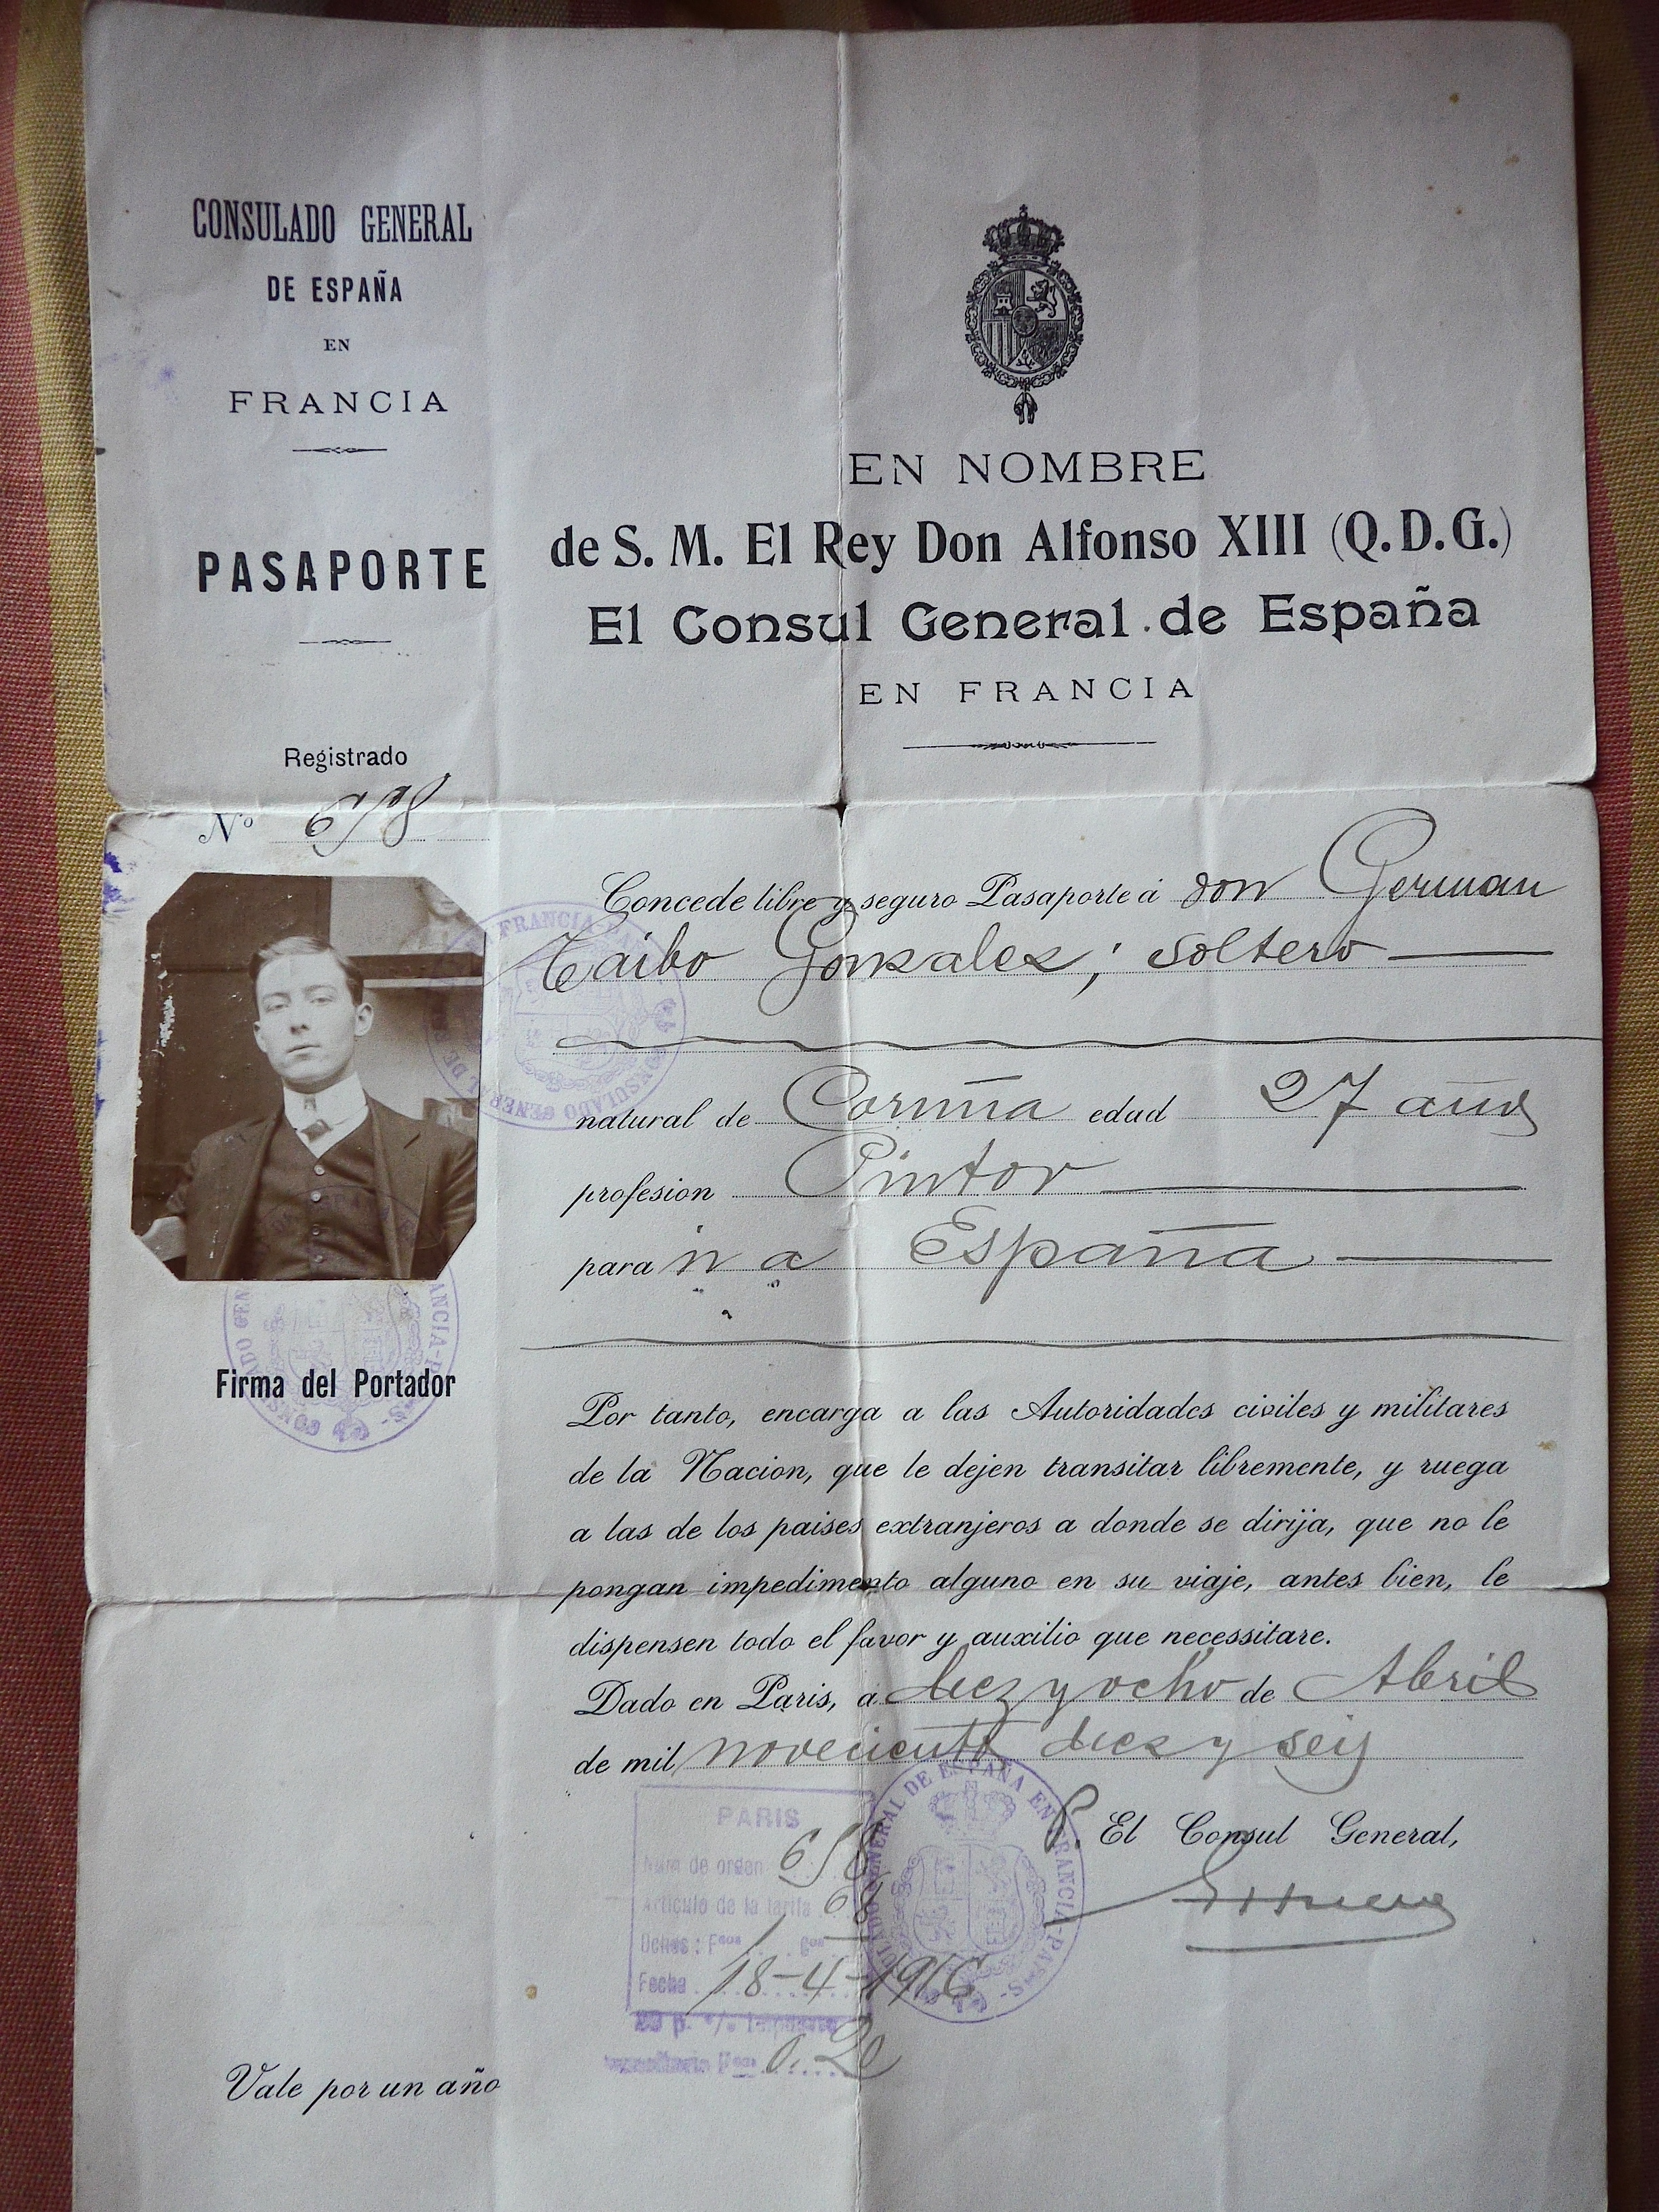 CONSULADO GENERAL
DE ESPAÑA
EN
FRANCIA
PASAPORTE
Registrado
Nº 658
Firma del Portador
Vale por un año
EN NOMBRE
de S. M. El Rey Don Alfonso XIII (Q.D.G.)
El Consul General de España
EN FRANCIA
Concede libre y seguro Pasaporte á don German
Taibo Gonzalez; soltero
natural de Coruña edad 27 años
profesion Pintor
para ir a España
Por tanto, encarga a las Autoridades civiles y militares
de la Nacion, que le dejen transitar libremente, y ruega
a las de los paises extranjeros a donde se dirija, que no le
pongan impedimento alguno en su viaje, antes bien, le
dispensen todo el favor y auxilio que necessitare.
Dado en Paris, a diez y ocho de Abril
de mil novecientos diez y seis
P. El Consul General,
PARIS
Núm de orden 658
Artículo de la tarifa
Fecha 18-4-1916
0.20
CONSULADO GENERAL DE ESPAÑA EN FRANCIA-PARIS-